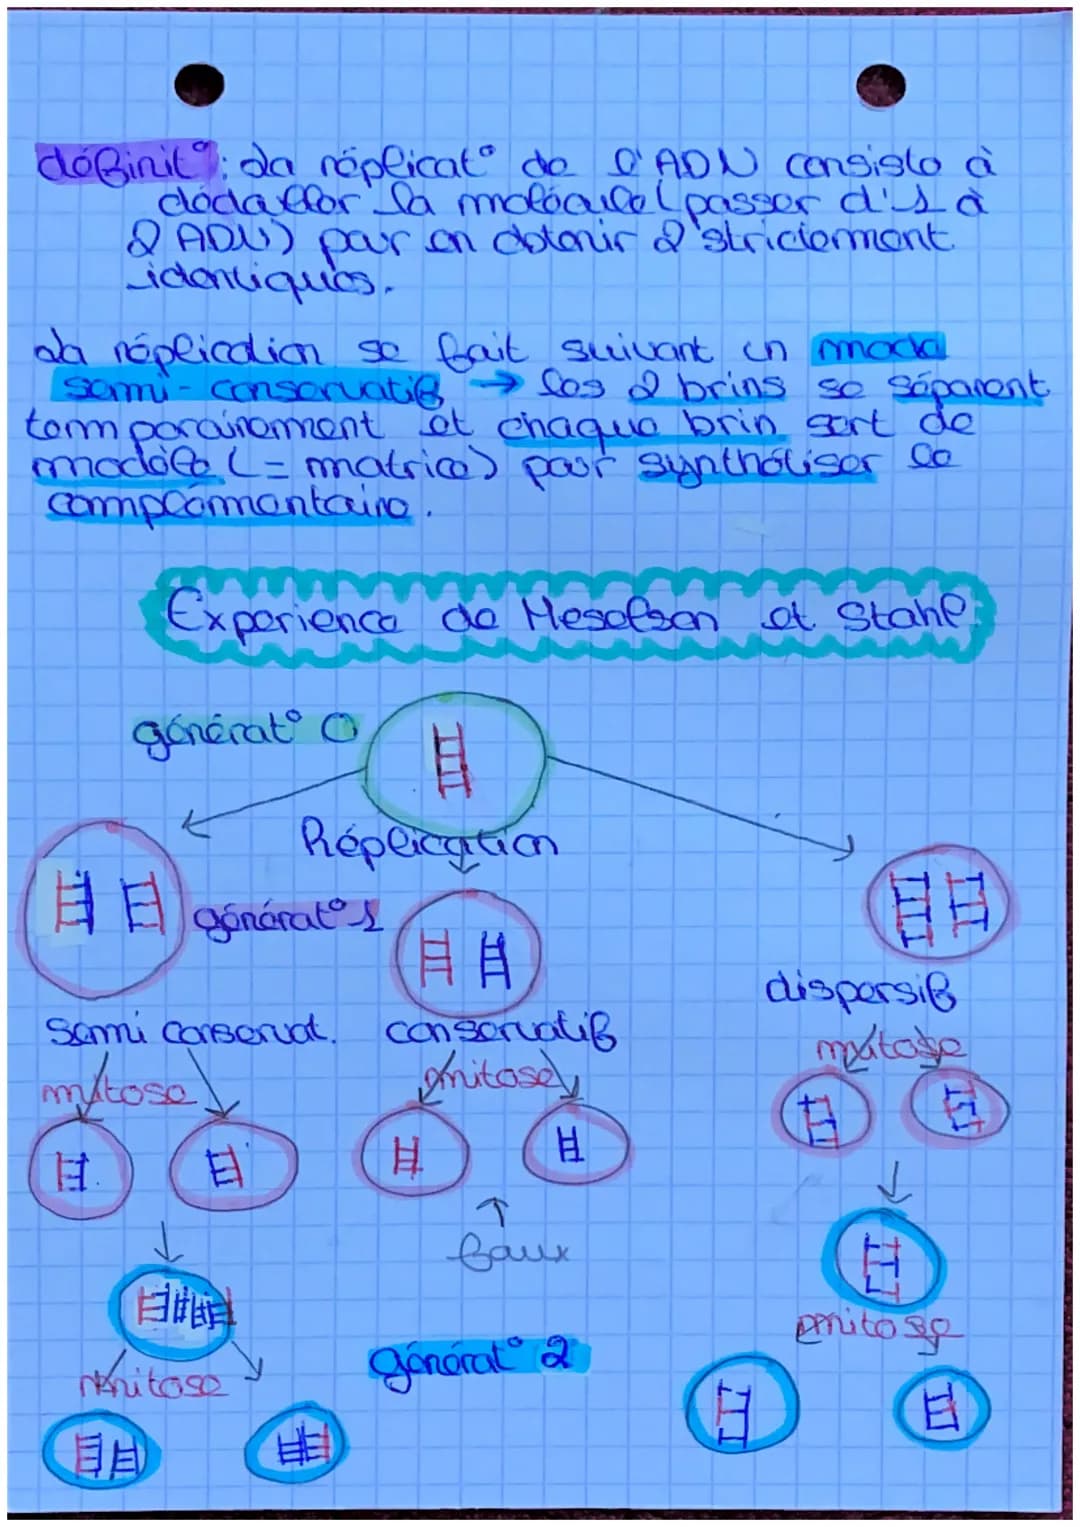 définit° : La réplicat° de l'ADN consiste à
dédoubler la molécule (passer d'1 à
2 ADN) pour en obtenir 2 strictement
identiques.
La réplication se fait suivant un mode
semi-conservatif → les 2 brins se séparent
temporairement et chaque brin sert de
modèle (= matrice) pour synthétiser le
complémentaire.
Experience de Meselson et Stahl
générat° 0
Réplication
générat° 1
semi conservat.
conservatif
dispersif
mitose
mitose
mitose
faux
mitose
générat° 2
mitose